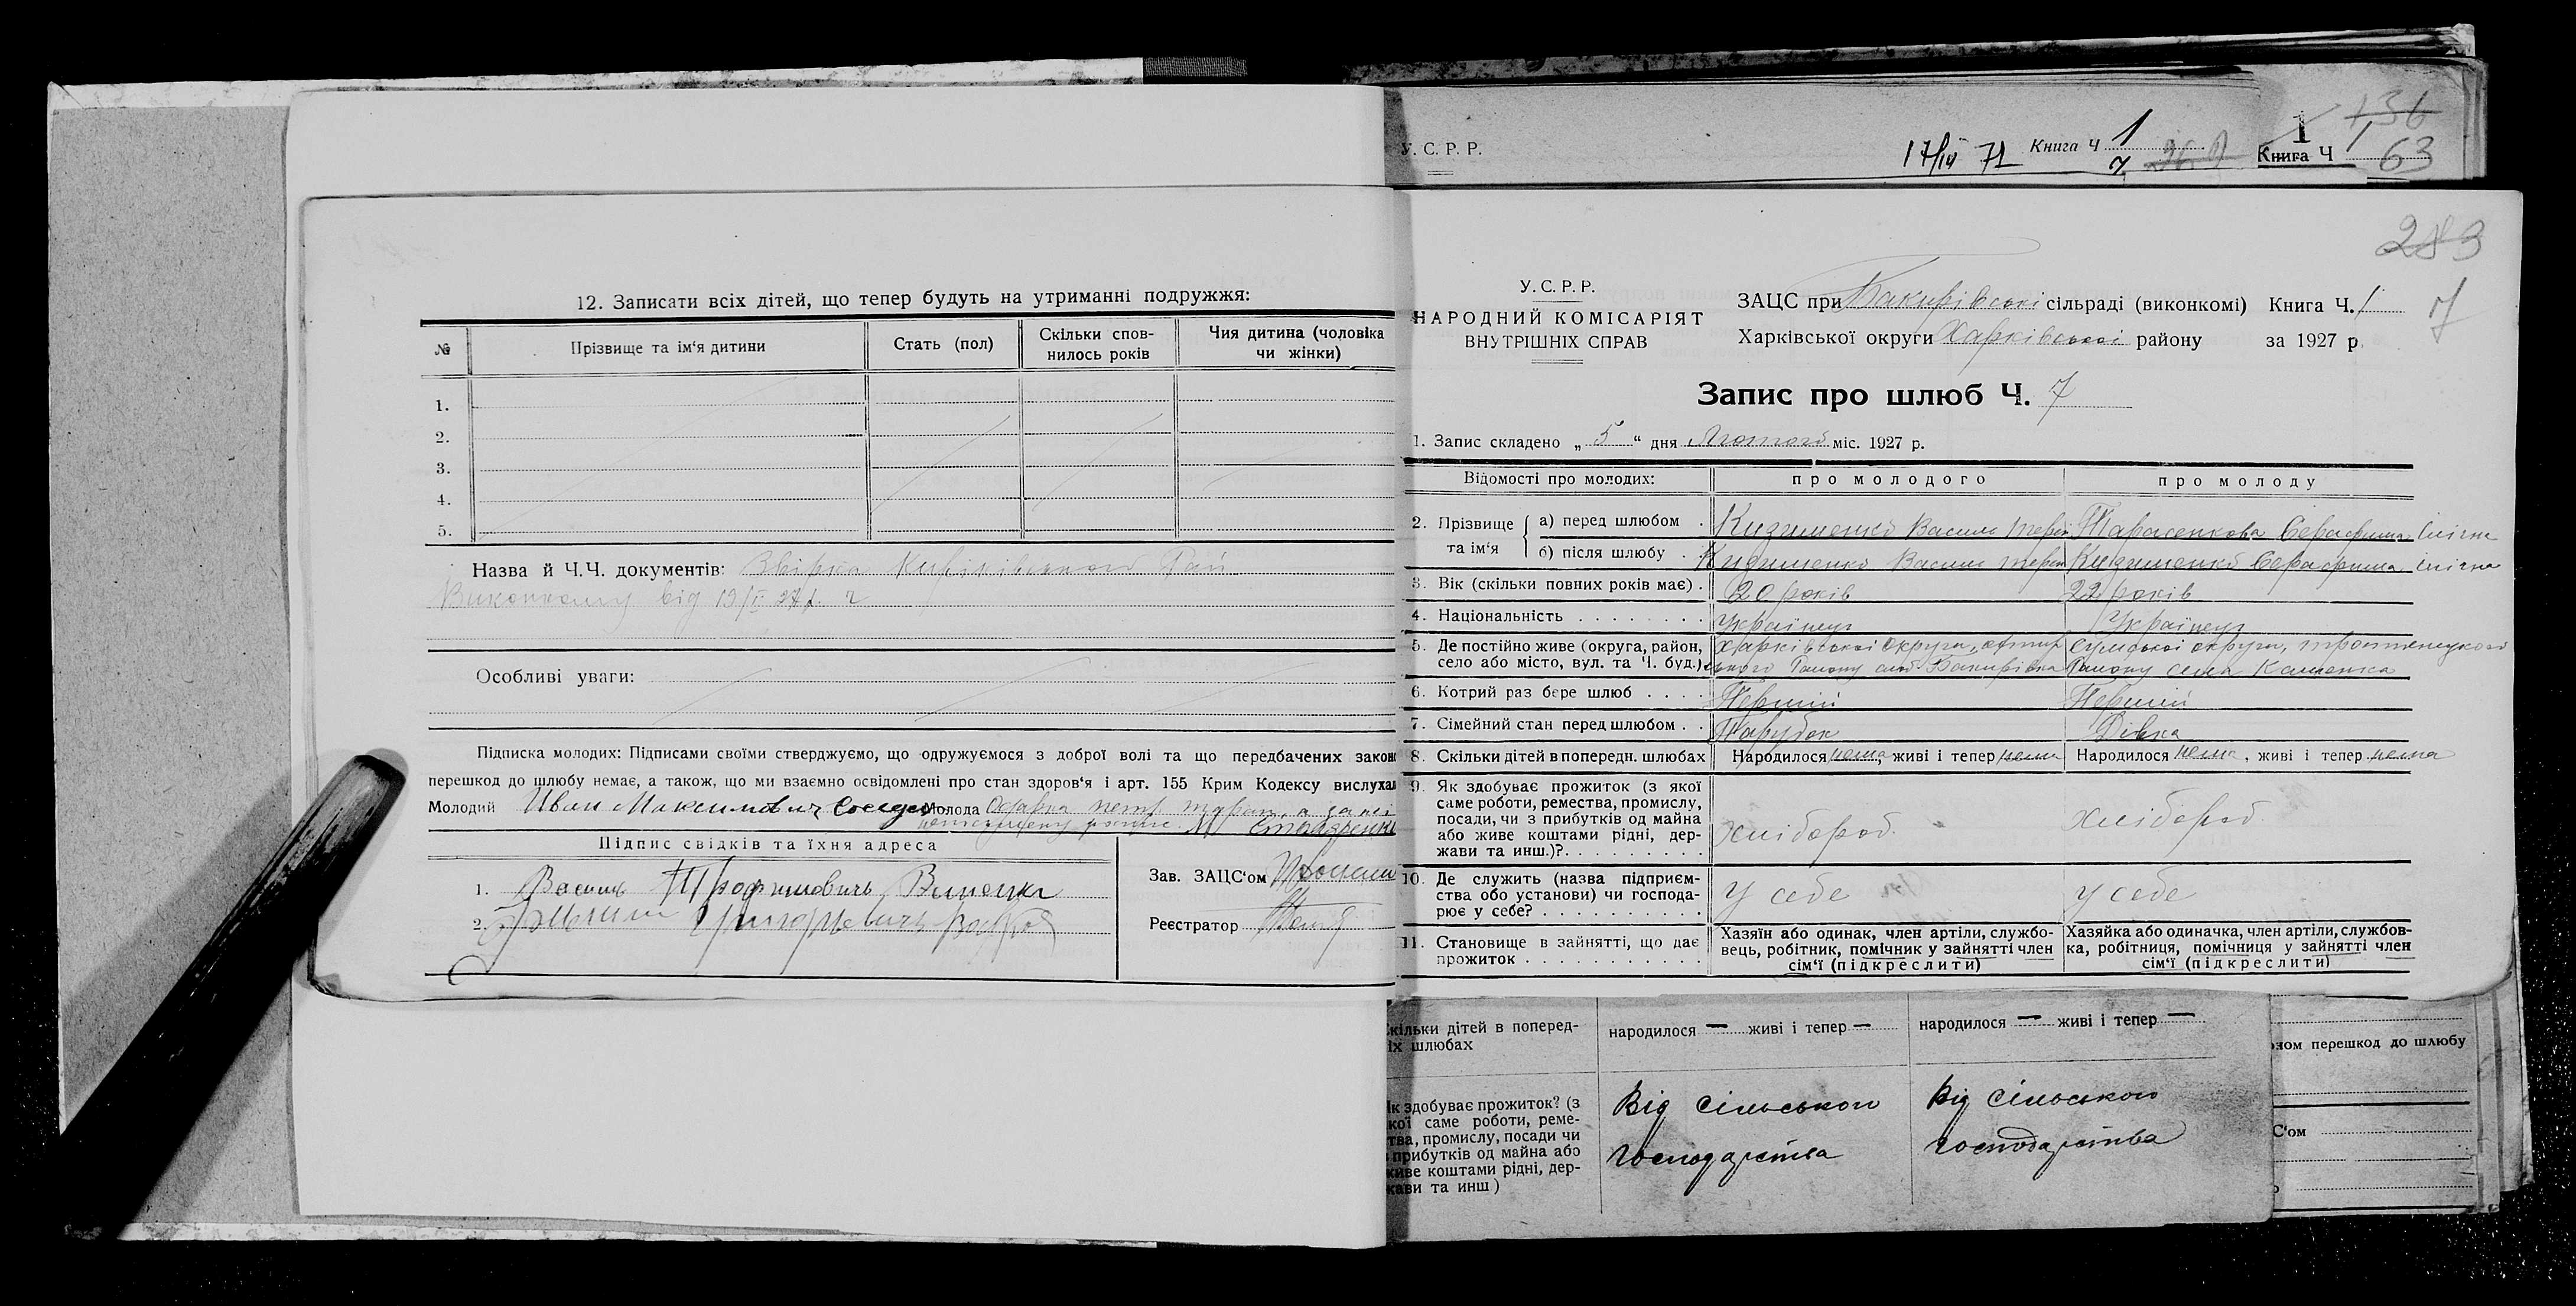 У. С. Р. Р.
17/IV 71 Книга Ч 1
Книга Ч 1
136
63
12. Записати всіх дітей, що тепер будуть на утриманні подружжя:
№ Прізвище та ім'я дитини Стать (пол) Скільки спов- Чия дитина (чоловіка
нилось років чи жінки)
1.
2.
3.
4.
5.
Назва й Ч.Ч. документів:
від
Особливі уваги:
Підписка молодих: Підписами своїми стверджуємо, що одружуємося з доброї волі та що передбачених закон
перешкод до шлюбу немає, а також, що ми взаємно освідомлені про стан здоров'я і арт. 155 Крим Кодексу вислуха
Молодий Иван Максимович Молода
Підпис свідків та їхня адреса
1. Василь
2.
Зав. ЗАЦС'ом
Реєстратор
283
7
У. С. Р. Р.
НАРОДНИЙ КОМІСАРІЯТ
ВНУТРІШНІХ СПРАВ
ЗАЦС при Бакирівській сільраді (виконкомі) Книга Ч. 1
Харківської округи Харківської району за 1927 р.
Запис про шлюб Ч. 7
1. Запис складено „ 5 “ дня Лютого міс. 1927 р.
Відомості про молодих: про молодого про молоду
2. Прізвище та ім'я а) перед шлюбом . Кизименко Василь Тарасенкова Серафима
б) після шлюбу . . Кизименко Василь Кизименко Серафима
3. Вік (скільки повних років має) . 20 років 22 років
4. Національність . . . . . . . . Українец Українец
5. Де постійно живе (округа, район, Харківської округи, Сумської округи, тростенецкого
село або місто, вул. та Ч. буд.) Району Бакирівка Району села Каменка
6. Котрий раз бере шлюб . . . . Перший Перший
7. Сімейний стан перед шлюбом . . Парубок Дівка
8. Скільки дітей в попередн. шлюбах Народилося нема, живі і тепер нема Народилося нема, живі і тепер нема
9. Як здобуває прожиток (з якої
саме роботи, ремества, промислу,
посади, чи з прибутків од майна
або живе коштами рідні, дер-
жави та инш.)? . . . . . . . . . Хлібороб. Хлібороб.
10. Де служить (назва підприєм-
ства обо установи) чи господа-
рює у себе? . . . . . . . . . . у себе у себе
11. Становище в зайнятті, що дає
прожиток . . . . . . . . . . .
Хазяїн або одинак, член артіли, службо-
вець, робітник, помічник у зайнятті член
сім'ї (підкреслити)
Хазяйка або одиначка, член артіли, службов-
ка, робітниця, помічниця у зайнятті член
сім'ї (підкреслити)
кільки дітей в поперед- народилося — живі і тепер — народилося — живі і тепер —
іх шлюбах
Як здобуває прожиток? (з
кої саме роботи, реме-
тва, промислу, посади чи
прибутків од майна або
живе коштами рідні, дер-
жави та инш)
Від сільського
господарства
Від сільського
господарства
оном перешкод до шлюбу
С'ом